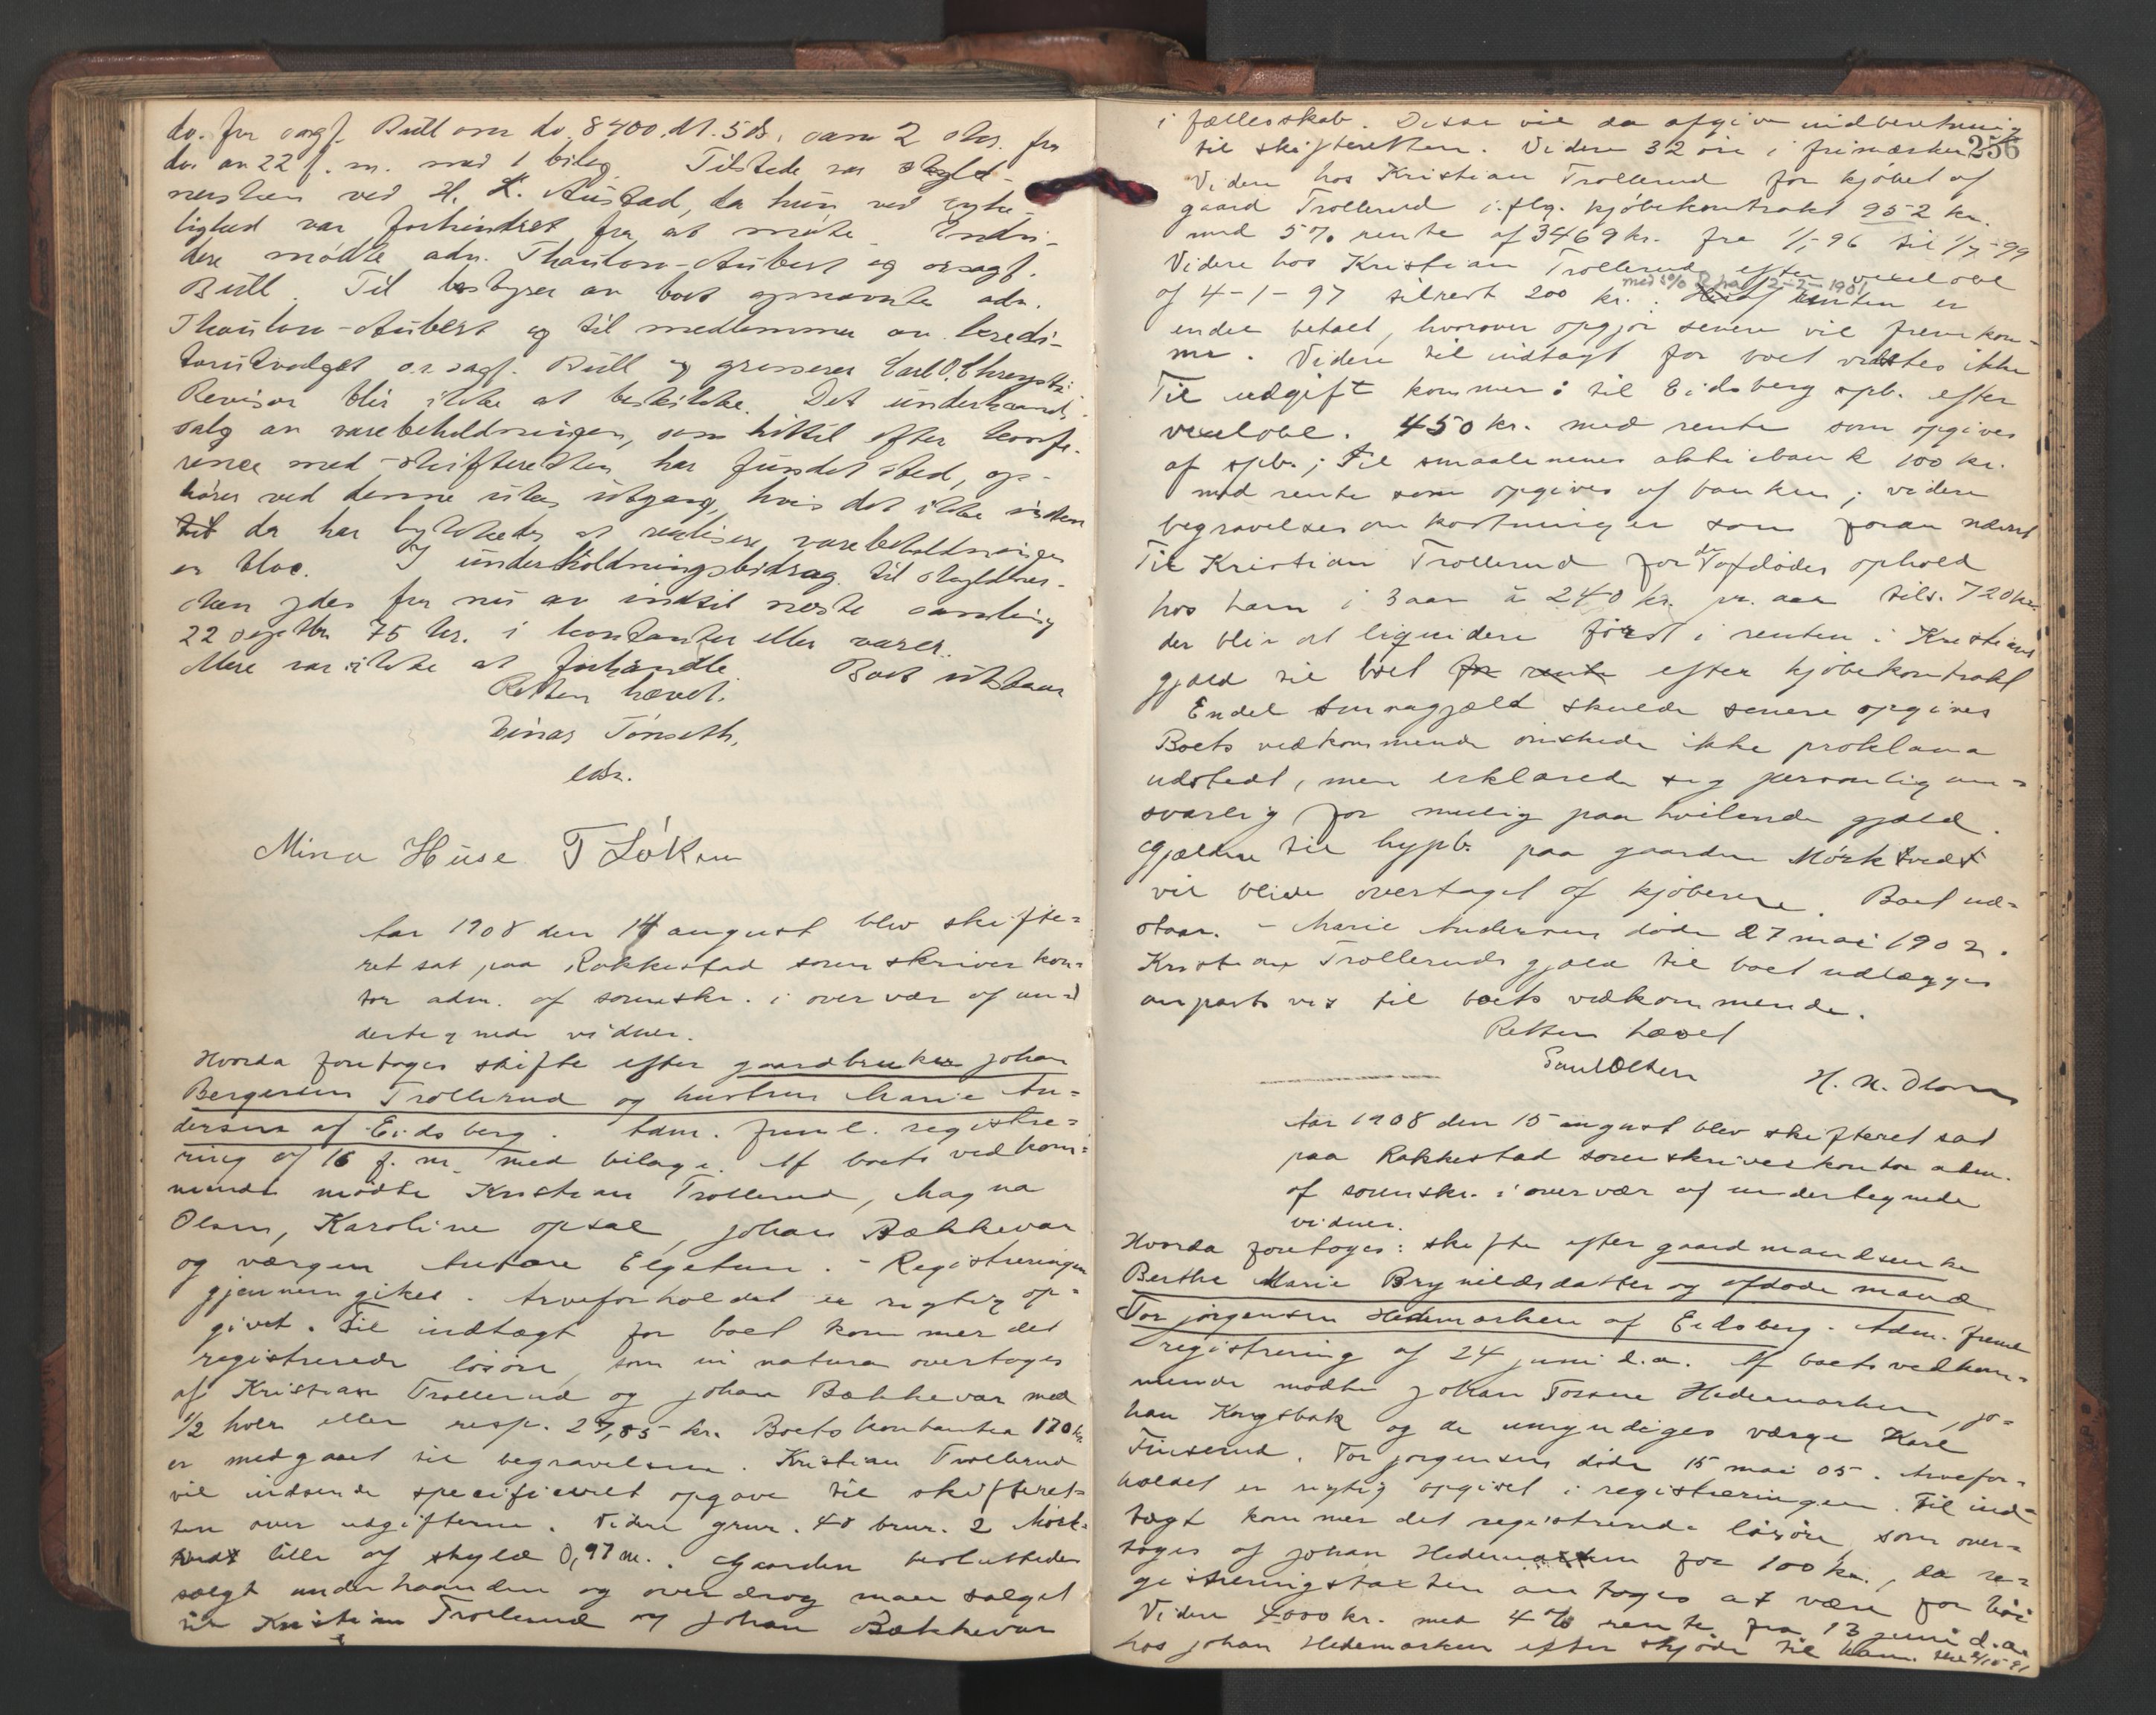 do. fra orsagf. Bull om do. 8400, dt. 5 ds., samt 2 skr. fra
do. av 22 f. m. med 1 bilag. Tilstede var skyld-
nersken ved H. K. Austad, da hun ved syke-
lighed var forhindret fra at møte. Endvi-
dere mødte adv. Thaulow-Aubert og orsagf.
Bull. Til bestyrer av boet opnævntes adv.
Thaulow-Aubert og til medlemmer av kredi-
torutvalget o.r.sagf. Bull og grosserer Carl O.
Revisor blir ikke at beskikke. Det underhaands-
salg av varebeholdningen, som hittil efter konfe-
rence med skifteretten har fundet sted, op-
hører ved denne ukes utgang, hvis det ikke inden
da har lykkedes at realisere varebeholdningen
en bloc. I underholdningsbidrag til skyldner-
sken ydes fra nu av indtil næste samling
22 septbr. 75 kr. i kontanter eller varer.
Mere var ikke at forhandle. Boet utstaar
Retten hævet.
Einar Tønseth,
edsv.
Mina Huse T Løken
Aar 1908 den 14 august blev skifte=
ret sat paa Rakkestad sorenskriverkon=
tor adm. af sorenskr. i overvær af un=
dertegnede vidner.
Hvorda foretoges skifte efter gaardbruker Johan
Bergersen Trollerud og hustru Marie An=
dersen af Eidsberg. Adm. freml. registre=
ring af 16 f. m. med bilage. Af boets vedkom=
mende mødte Kristian Trollerud, Magna
Olsen, Karoline Opsal, Johan Bækkevar
og værgen Anton Elgetun. - Registreringen
gjennemgikes. Arveforholdet er rigtig op=
givet. Til indtægt for boet kommer det
registrerede løsøre, som in natura overtoges
af Kristian Trollerud og Johan Bækkevar med
1/2 hver eller resp. 27,85 kr. Boets kontanter 170 kr.
er medgaaet til begravelsen. Kristian Trollerud
vil indsende specificeret opgave til skifteret=
ten over udgifterne. Videre grnr. 40 brnr. 2 Mørk=
tvedt lille af skyld 0,97 m. Gaarden besluttedes
solgt underhaanden og overdrog man salget
til Kristian Trollerud og Johan Bækkevar
256
i fællesskab. Disse vil da afgive indberetning
til skifteretten. Videre 32 øre i frimærker
Videre hos Kristian Trollerud for kjøbet af
gaard Trollerud i.flg. kjøbekontrakt 952 kr.
med 5% rente af 3469 kr. fra 1/1-96 til 1/7-99
Videre hos Kristian Trollerud efter vexelobl
med 5% R fra 12-2-1901
af 4-1-97 tilrest 200 kr. Heraf renten er
endel betalt, hvorover opgjør senere vil fremkom-
me. Videre til indtægt for boet vidstes ikke
Til udgift kommer: til Eidsberg spb. efter
vexelobl. 450 kr. med rente som opgives
af spb.; til smaalenenes aktiebank 100 kr.
med rente som opgives af banken; videre
begravelsesomkostninger som foran nævnt
Til Kristian Trollerud for de afdødes ophold
hos ham i 3 aar à 240 kr. pr. aar tils. 720 kr.
der blir at liquidere først i renten i Kristians
gjæld til boet for rente efter kjøbekontrakt
Endel smaagjæld skulde senere opgives
Boets vedkommende ønskede ikke proklama
udstedt, men erklærede sig personlig an=
svarlig for mulig paahvilende gjæld.
Gjælden til hypb. paa gaarden Mørktvedt
vil blive overtaget af kjøberne. Boet ud=
staar. - Marie Andersen døde 27 mai 1902.
Kristian Trolleruds gjæld til boet udlægges
anpartsvis til boets vedkommende.
Retten hævet
Paul Olsen H. N. Olsen
Aar 1908 den 15 august blev skifteret sat
paa Rakkestad sorenskriverkontor adm.
af sorenskr. i overvær af undertegnede
vidner.
Hvorda foretoges: skifte efter gaardmandsenke
Berthe Marie Brynildsdatter og afdøde mand
Tor Jørgensen Hedemarken af Eidsberg. Adm. freml
registrering af 24 juni d.a. Af boets vedkom=
mende mødte Johan Torsen Hedemarken, Jo=
han Kongsbak og de umyndiges værge Karl
Finserud. Tor Jørgensen døde 15 mai 05. Arvefor=
holdet er rigtig opgivet i registreringen. Til ind=
tægt kommer det registrerede løsøre, som over=
toges af Johan Hedemarken for 100 kr., da re=
gistreringstaxten antoges at være for høi
Videre 4000 kr. med 4% rente fra 13 juni d.a.
hos Johan Hedemarken efter skjøde til ham